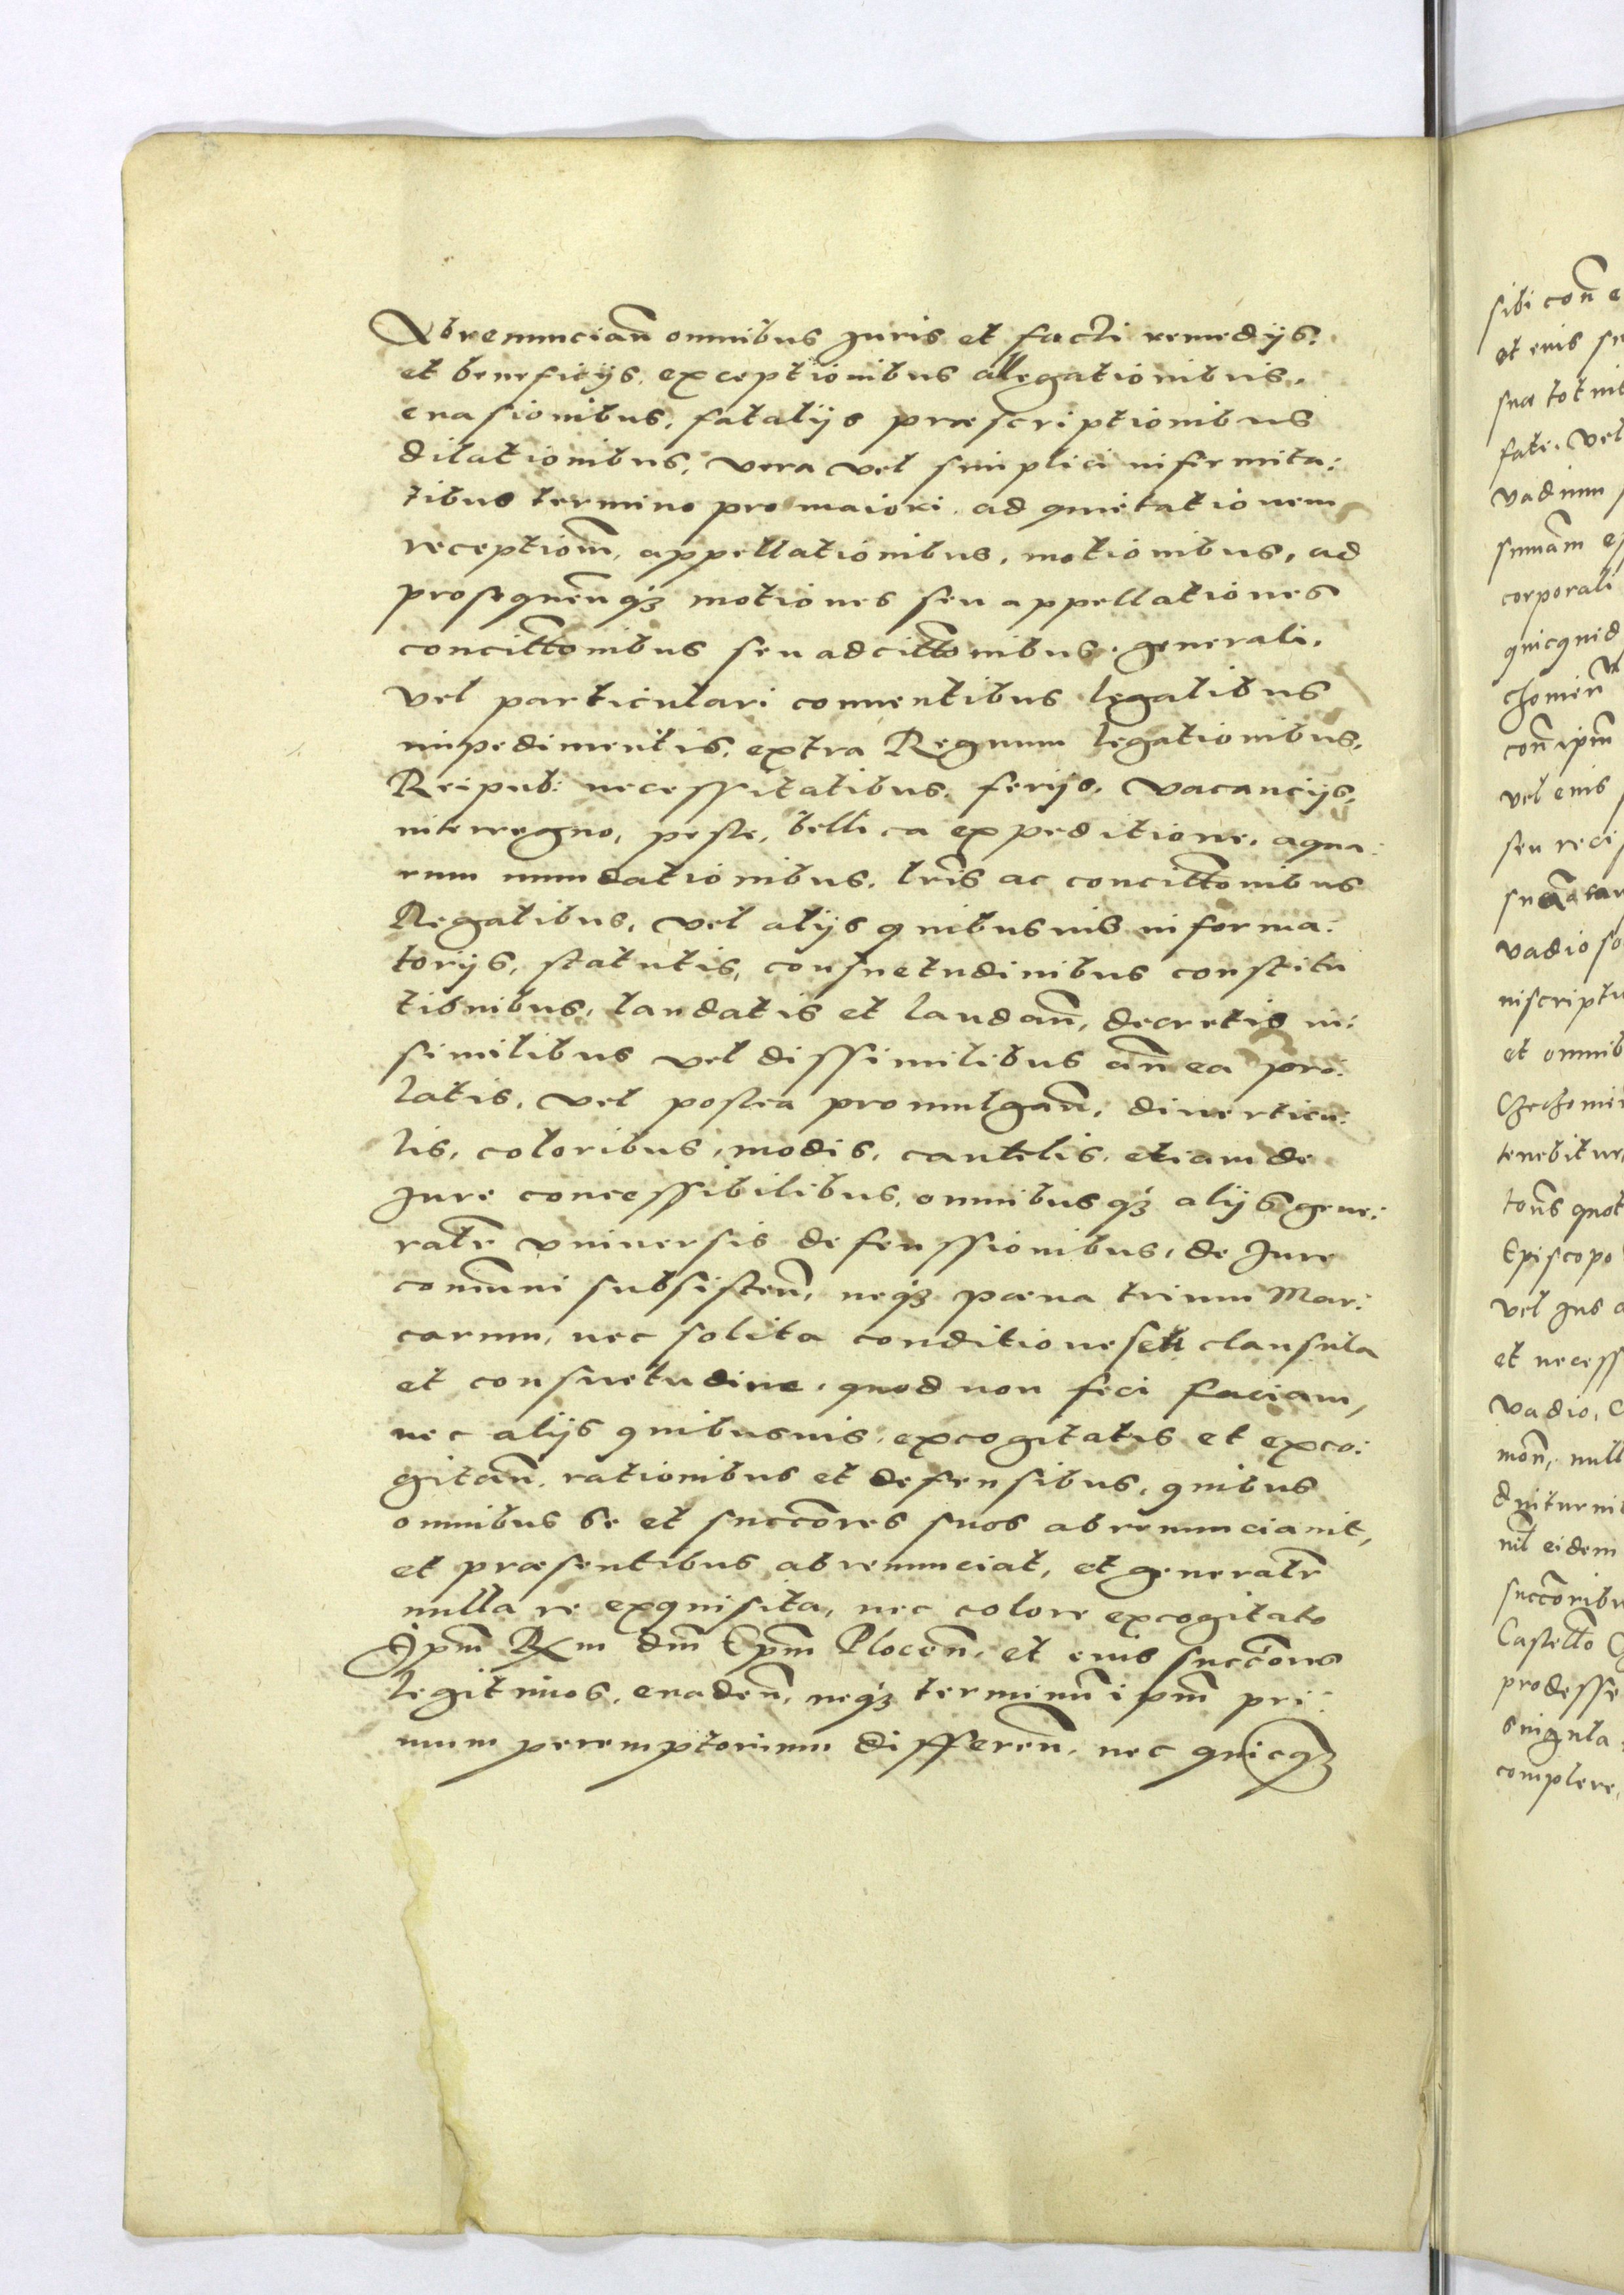 Abrenuncian̄ omnibus Juris et facti remedijs:
et beneficijs, exceptionibus allegationibus,
euasionibus, fatalijs præscriptionibus
dilationibus, vera vel simplici infirmita:
tibus termino pro maiori, ad quietationem
receptiom̄, appellationibus, motionibus, ad
prosequen̄ qȝ motiones seu appellationes
concitt̄onibus seu adcitt̄onibus, generali,
vel particulari conuentibus legalibus
impedimentis, extra Regnum legationibus,
Reipub: necessitatibus, ferijs, vacancijs,
interregno, peste, bellica expeditione, aqua:
rum inundationibus, lr̄is ac concitt̄onibus
Regalibus, vel alijs quibusuis informa:
torijs, statutis, consuetudinibus constitu
tionibus, laudatis et laudan̄, decretis in:
similibus vel dissimilibus an̄ ea pro:
latis, vel postea promulgan̄, diuerticu:
lis, coloribus, modis, cautelis, etiam de
Jure concessibilibus, omnibusqȝ alijs gene:
ralr̄ vniuersis defenssionibus, de Jure
com̄uni subsisten̄, neqȝ pæna trium Mar:
carum, nec solita conditione seu clausula
et consuetudine, quod non feci faciam,
nec alijs quibusuis, excogitatis et exco:
gitan̄, rationibus et defensibus, quibus
omnibus se et succ̄ores suos abrenunciauit,
et præsentibus abrenunciat, et generalr̄
nulla re exquisita, nec colore excogitato
Ipm̄ Rx̄m dm̄ Ep̄m Plocen̄, et eius succ̄ores
legitimos, euaden̄, neqȝ terminū ipm̄ pri:
mum peremptorium differen̄, nec quicqȝ
sibi con̄ e
et eius su
sua tot nit
fate, vel
vadium
sum̄am ex
corporali
quicquid
chomien̄
con̄ ipm̄
vel eius
seu reci
vadio so
inscriptu
et omnib
Czechomi
tenebitur,
ton̄s quot
Episcopo
vel Jus a
et necess
vadio, C
mon̄, null
diuturnit
eidem
succ̄oribu
Castell̄o
prodesse
singula
complere,